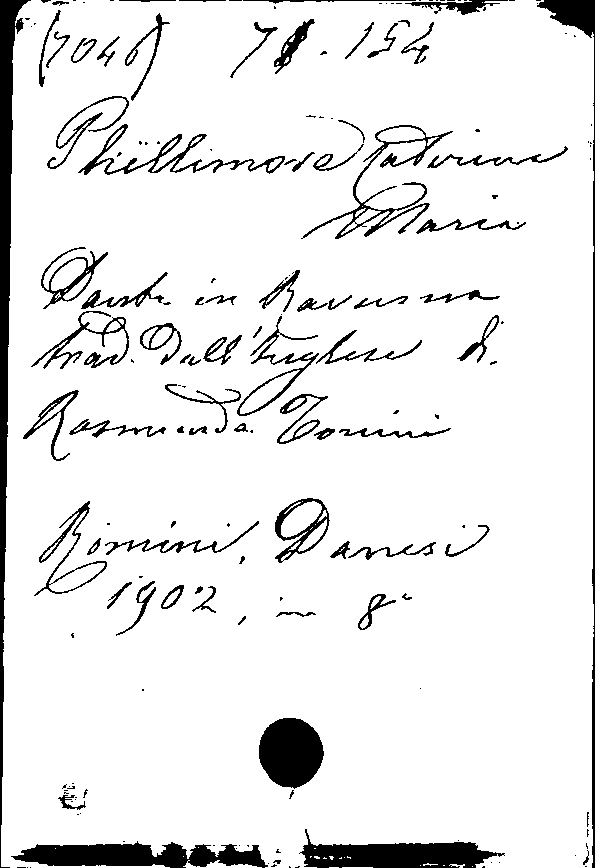 (7046) 7 . 154
Phillimore Caterina
Maria
Dante in Ravenna
trad. dall'Inglese di
Rasmunda Tonini
Rimini, Danesi
1902, in 8°